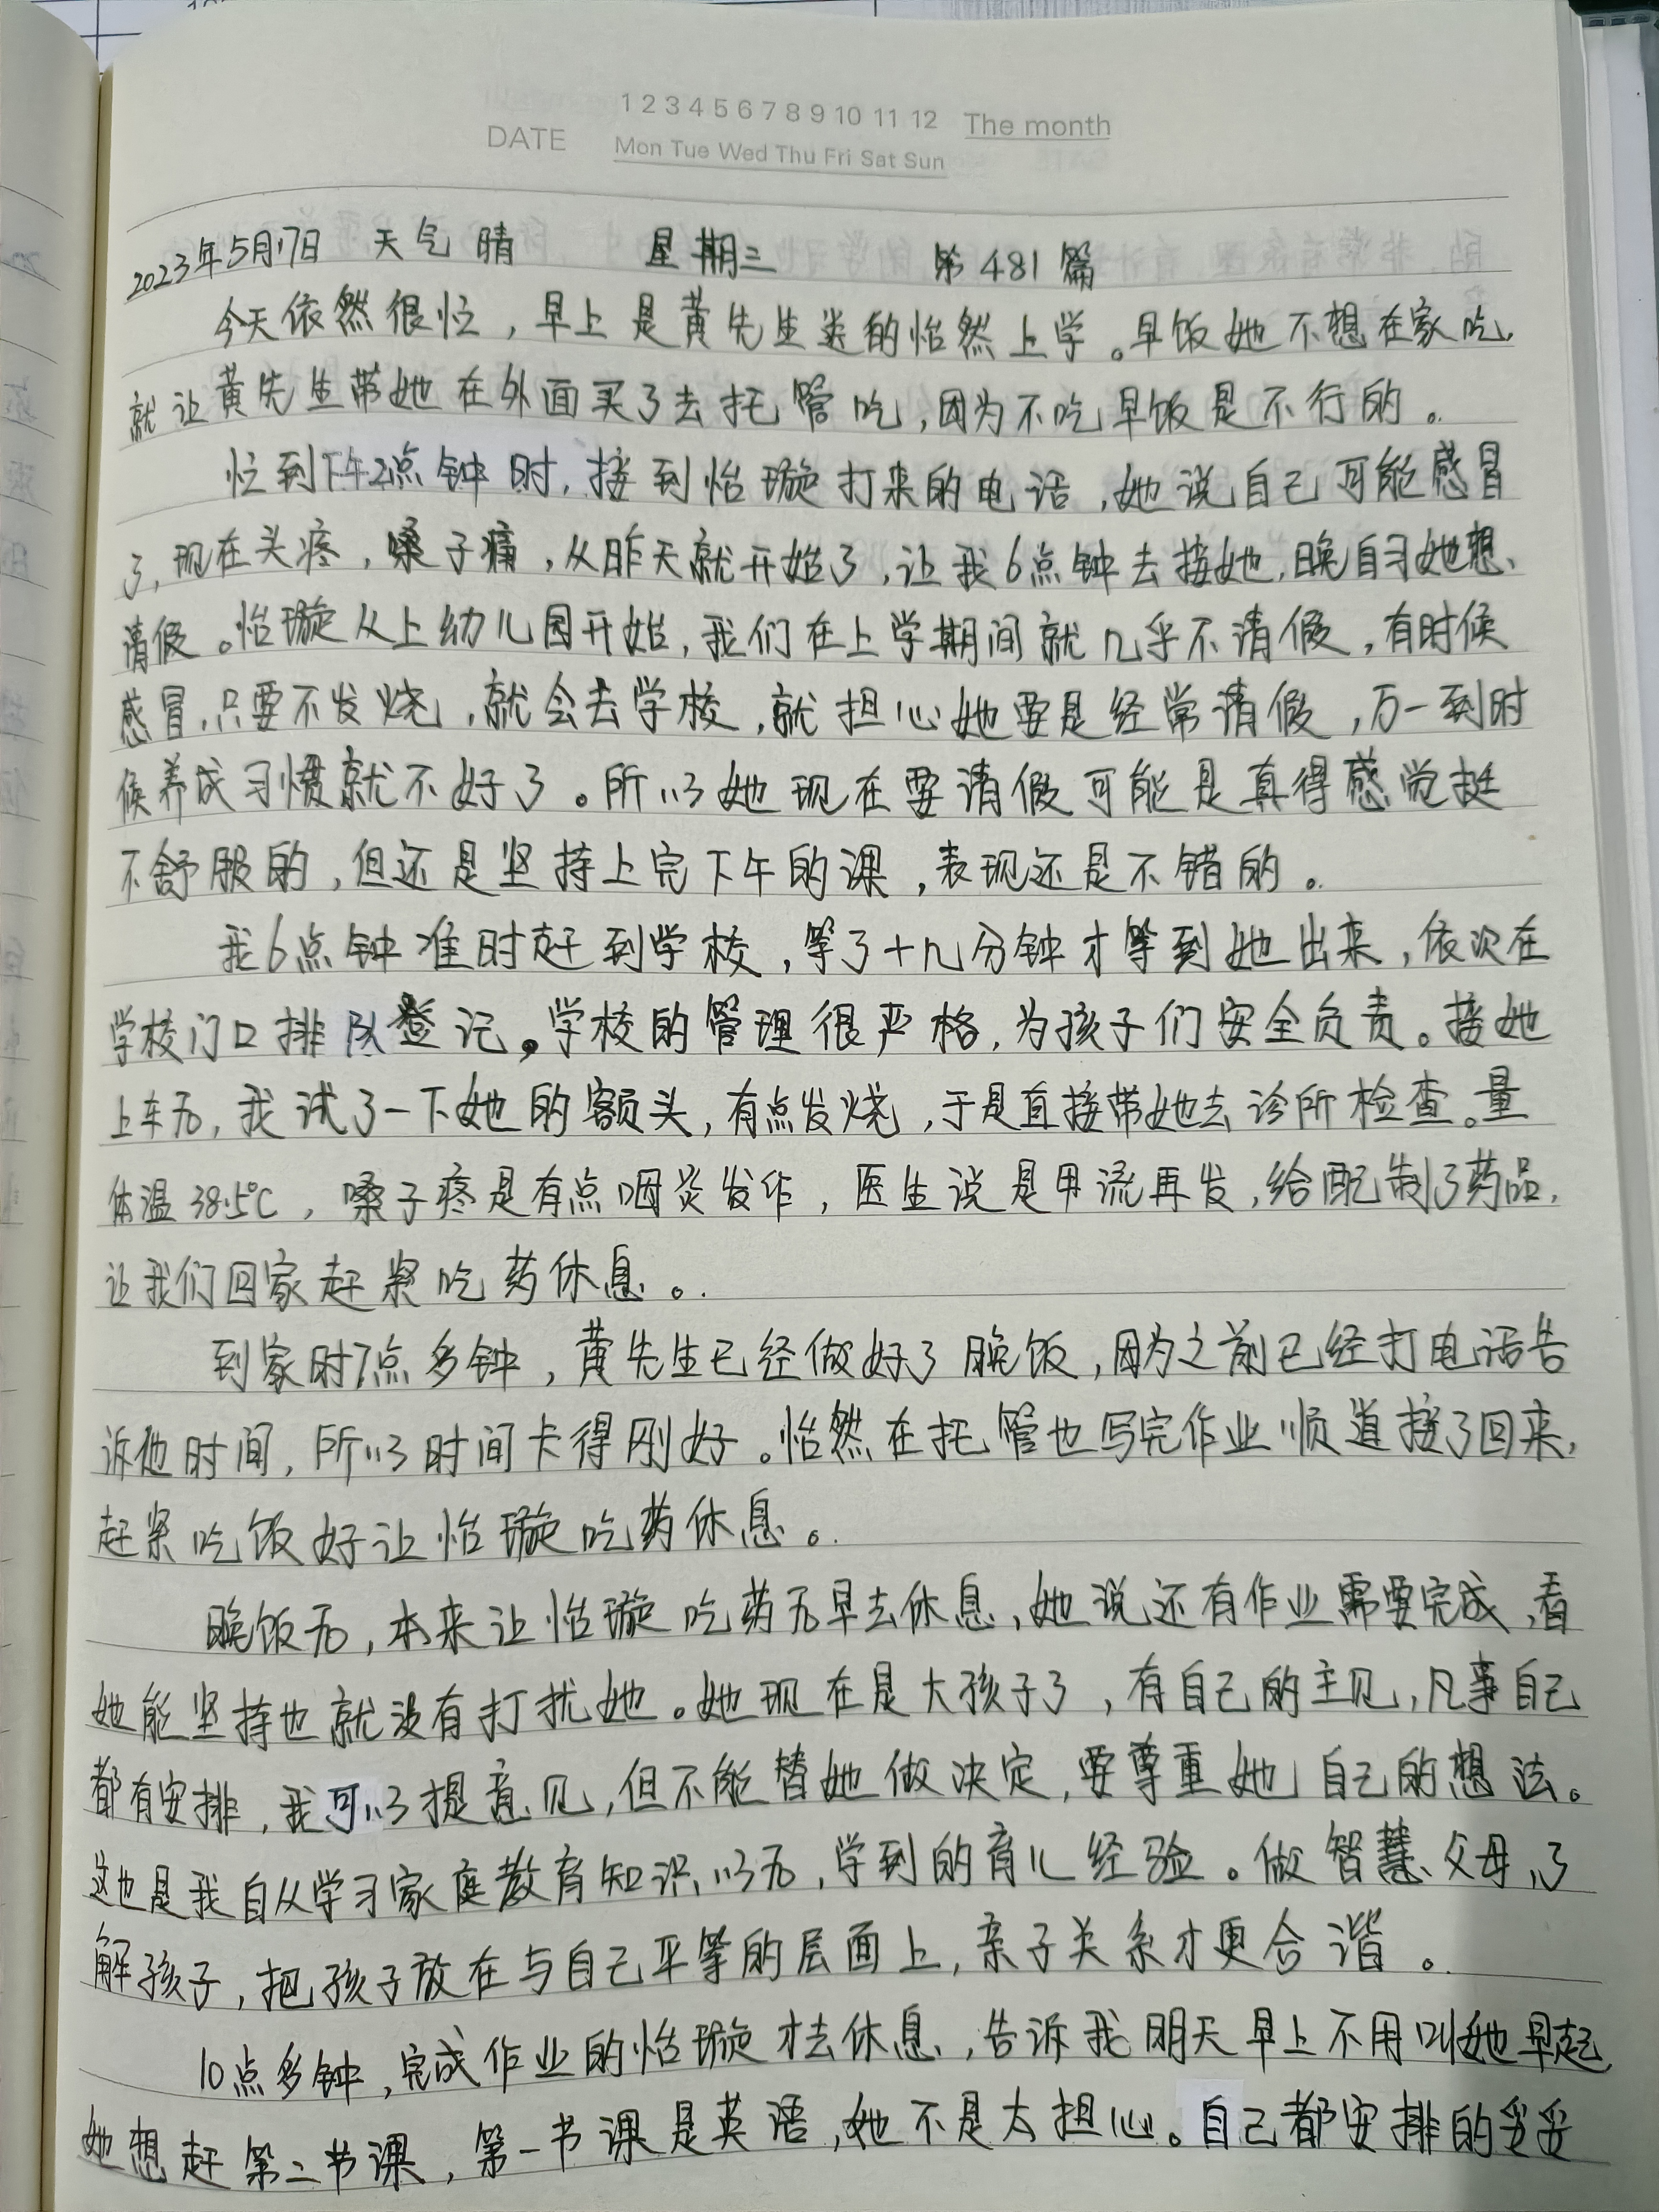 1 2 3 4 5 6 7 8 9 10 11 12 The month
DATE Mon Tue Wed Thu Fri Sat Sun
2023年5月17日 天气 晴 星期三 第481篇
今天依然很忙，早上是黄先生送的怡然上学。早饭她不想在家吃，
就让黄先生带她在外面买了去托管吃，因为不吃早饭是不行的。
忙到下午2点钟时，接到怡璇打来的电话，她说自己可能感冒
了，现在头疼，嗓子痛，从昨天就开始了，让我6点钟去接她，晚自习她想
请假。怡璇从上幼儿园开始，我们在上学期间就几乎不请假，有时候
感冒，只要不发烧，就会去学校，就担心她要是经常请假，万一到时
候养成习惯就不好了。所以她现在要请假可能是真得感觉挺
不舒服的，但还是坚持上完下午的课，表现还是不错的。
我6点钟准时赶到学校，等了十几分钟才等到她出来，依次在
学校门口排队登记。学校的管理很严格，为孩子们安全负责。接她
上车后，我试了一下她的额头，有点发烧，于是直接带她去诊所检查。量
体温38.5℃，嗓子疼是有点咽炎发作，医生说是甲流再发，给配制了药品，
让我们回家赶紧吃药休息。
到家时7点多钟，黄先生已经做好了晚饭，因为之前已经打电话告
诉他时间，所以时间卡得刚好。怡然在托管也写完作业顺道接了回来，
赶紧吃饭好让怡璇吃药休息。
晚饭后，本来让怡璇吃药后早去休息，她说还有作业需要完成，看
她能坚持也就没有打扰她。她现在是大孩子了，有自己的主见，凡事自己
都有安排，我可以提意见，但不能替她做决定，要尊重她自己的想法。
这也是我自从学习家庭教育知识以后，学到的育儿经验。做智慧父母，了
解孩子，把孩子放在与自己平等的层面上，亲子关系才更合谐。
10点多钟，完成作业的怡璇才去休息，告诉我明天早上不用叫她早起，
她想赶第二节课，第一节课是英语，她不是太担心。自己都安排的妥妥